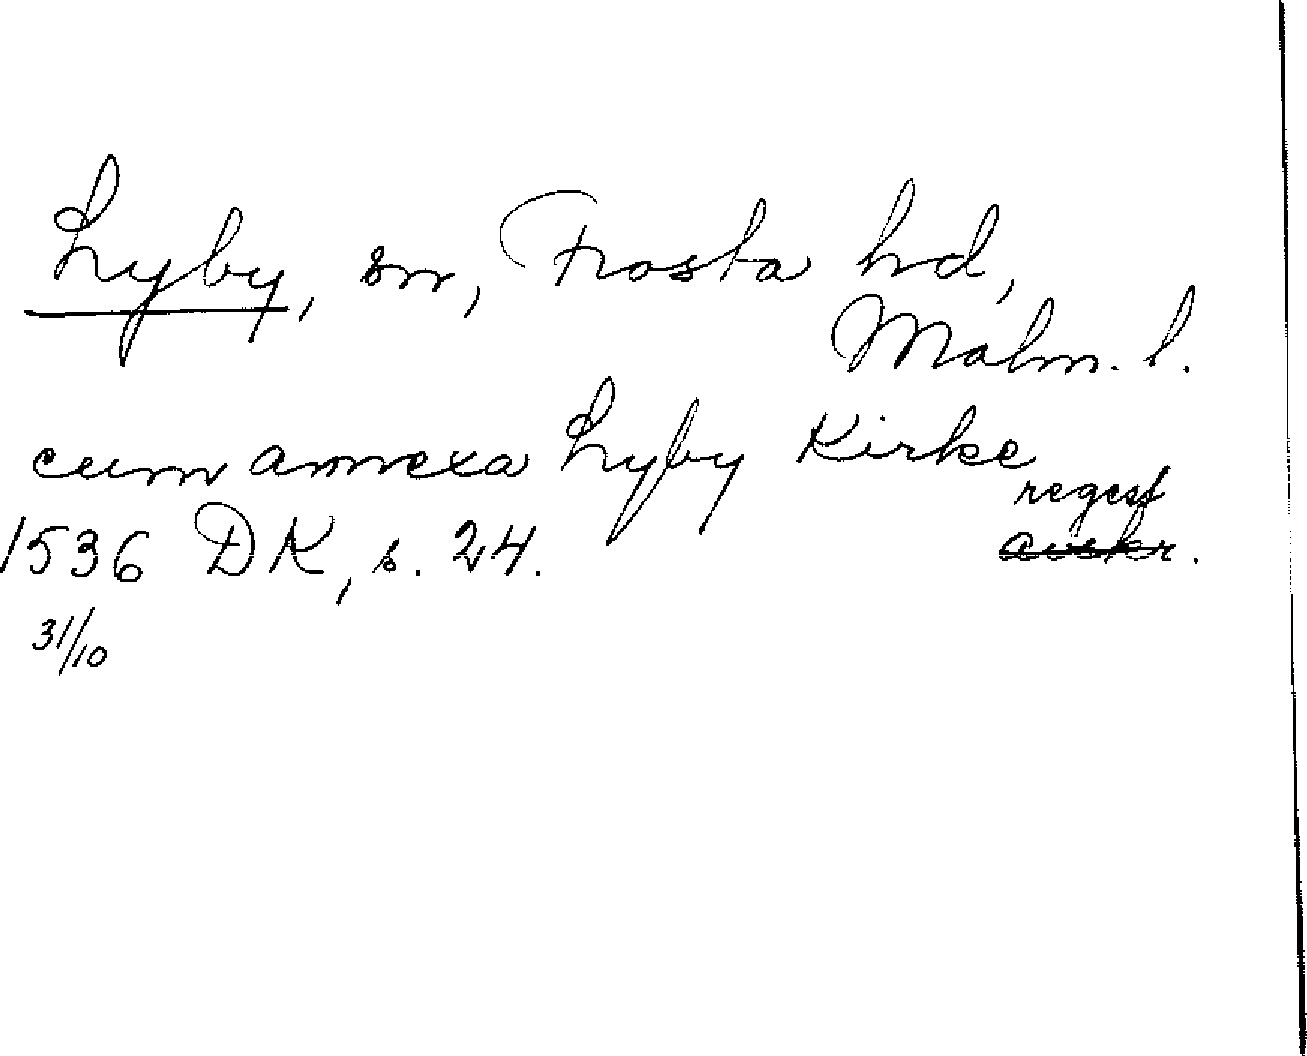 Lyby, sn, Frosta hd,
Malm. l.
cum annexa Lyby Kirke
regest
avskr.
1536 DK, s. 24.
31/10